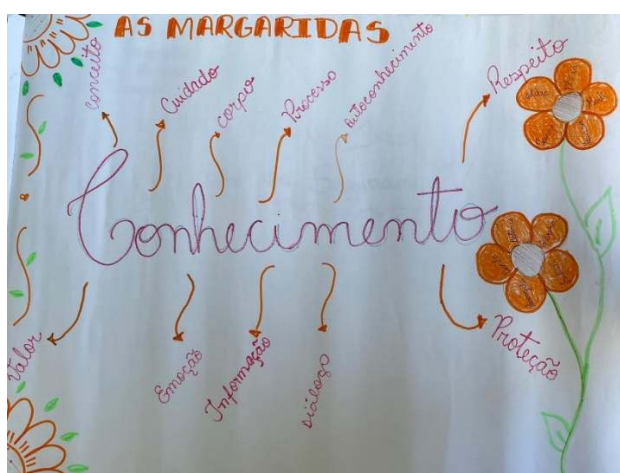 AS MARGARIDAS
Conceito
Cuidado
Corpo
Processo
Autoconhecimento
Respeito
Conhecimento
Valor
Emoção
Informação
Diálogo
Proteção